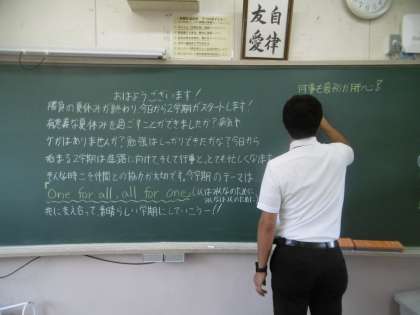 自律
友愛
おはようございます!
勝負の夏休みが終わり、今日から2学期がスタートします!
有意義な夏休みを過ごすことができましたか?病気や
ケガはありませんか?勉強はしっかりできたかな?今日から
始まる2学期は進路に向けて、そして行事と、とても忙しくなります
そんな時こそ仲間との協力が大切です。今学期のテーマは
「One for all, all for one」(1人はみんなのために、
みんなは1人のために)
共に支え合って素晴らしい学期にしていこうー!!
何事も最初が肝心!